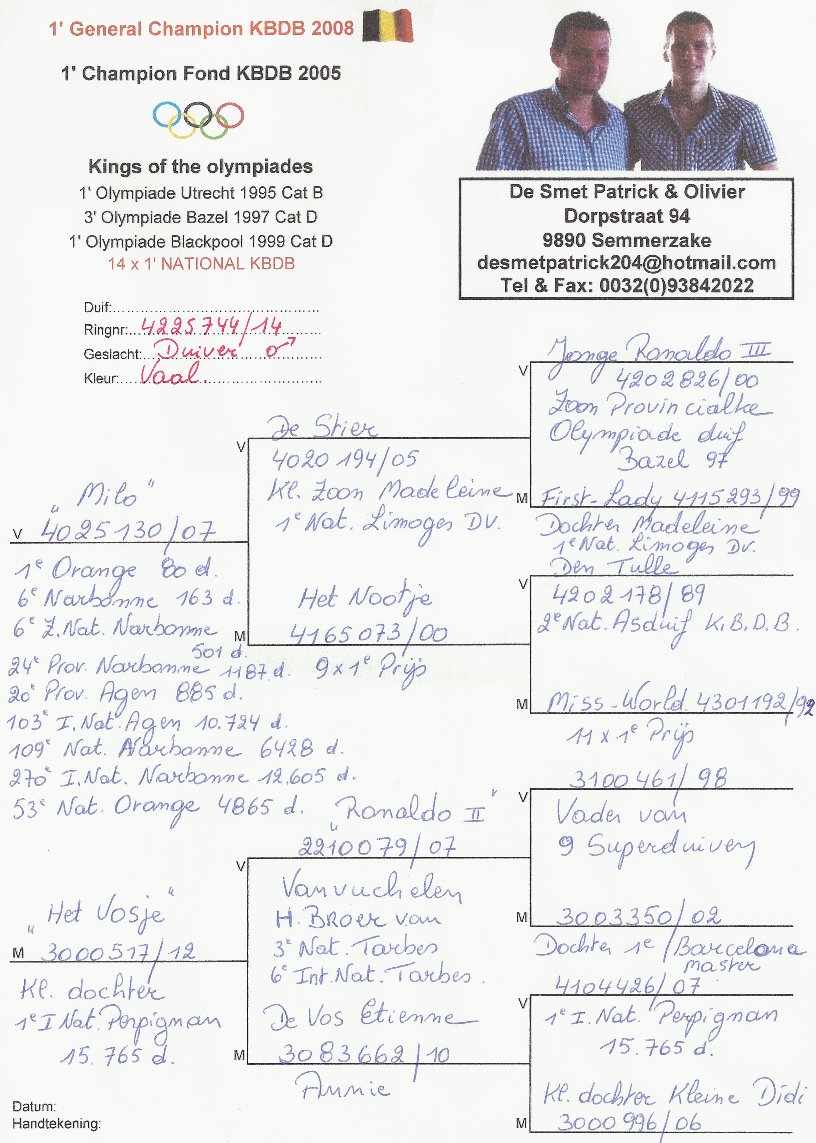 1' General Champion KBDB 2008
1' Champion Fond KBDB 2005
Kings of the olympiades
1' Olympiade Utrecht 1995 Cat B
3' Olympiade Bazel 1997 Cat D
1' Olympiade Blackpool 1999 Cat D
14 x 1' NATIONAL KBDB
De Smet Patrick & Olivier
Dorpstraat 94
9890 Semmerzake
desmetpatrick204@hotmail.com
Tel & Fax: 0032(0)93842022
Duif:
Ringnr: 4225744/14
Geslacht: Duiver ♂
Kleur: Vaal.
"Milo"
V 4025130/07
1e Orange 80 d.
6e Narbonne 163 d.
6e Z.Nat. Narbonne 501 d.
24e Prov. Narbonne 1187 d.
20e Prov. Agen 885 d.
103e I.Nat. Agen 10.724 d.
109e Nat. Narbonne 6428 d.
270e I.Nat. Narbonne 12.605 d.
53e Nat. Orange 4865 d.
"Het Vosje"
M 3000517/12
Kl. dochter
1e I Nat. Perpignan
15.765 d.
De Stier
V
4020194/05
Kl. Zoon Madeleine
1e Nat. Limoges DV.
Het Nootje
M 4165073/00
9 x 1e Prijs
"Ronaldo II"
2210079/07
V
Vanvuchelen
H. Broer van
3e Nat. Tarbes
6e Int.Nat. Tarbes.
De Vos Etienne
M 3083662/10
Annie
Jonge Ronaldo III
V
4202826/00
Zoon Provincialke
Olympiade duif
Bazel 97
M First-Lady 4115293/99
Dochter Madeleine
1e Nat. Limoges Dv.
Den Tulle
V
4202178/89
2e Nat. Asduif K.B.D.B.
M Miss-World 4301192/92
11 x 1e Prijs
3100461/98
V
Vader van
9 Superduiven
M 3003350/02
Dochter 1e/Barcelona
master
4104426/07
V
1e I. Nat. Perpignan
15.765 d.
Kl. dochter Kleine Didi
M 3000996/06
Datum:
Handtekening: